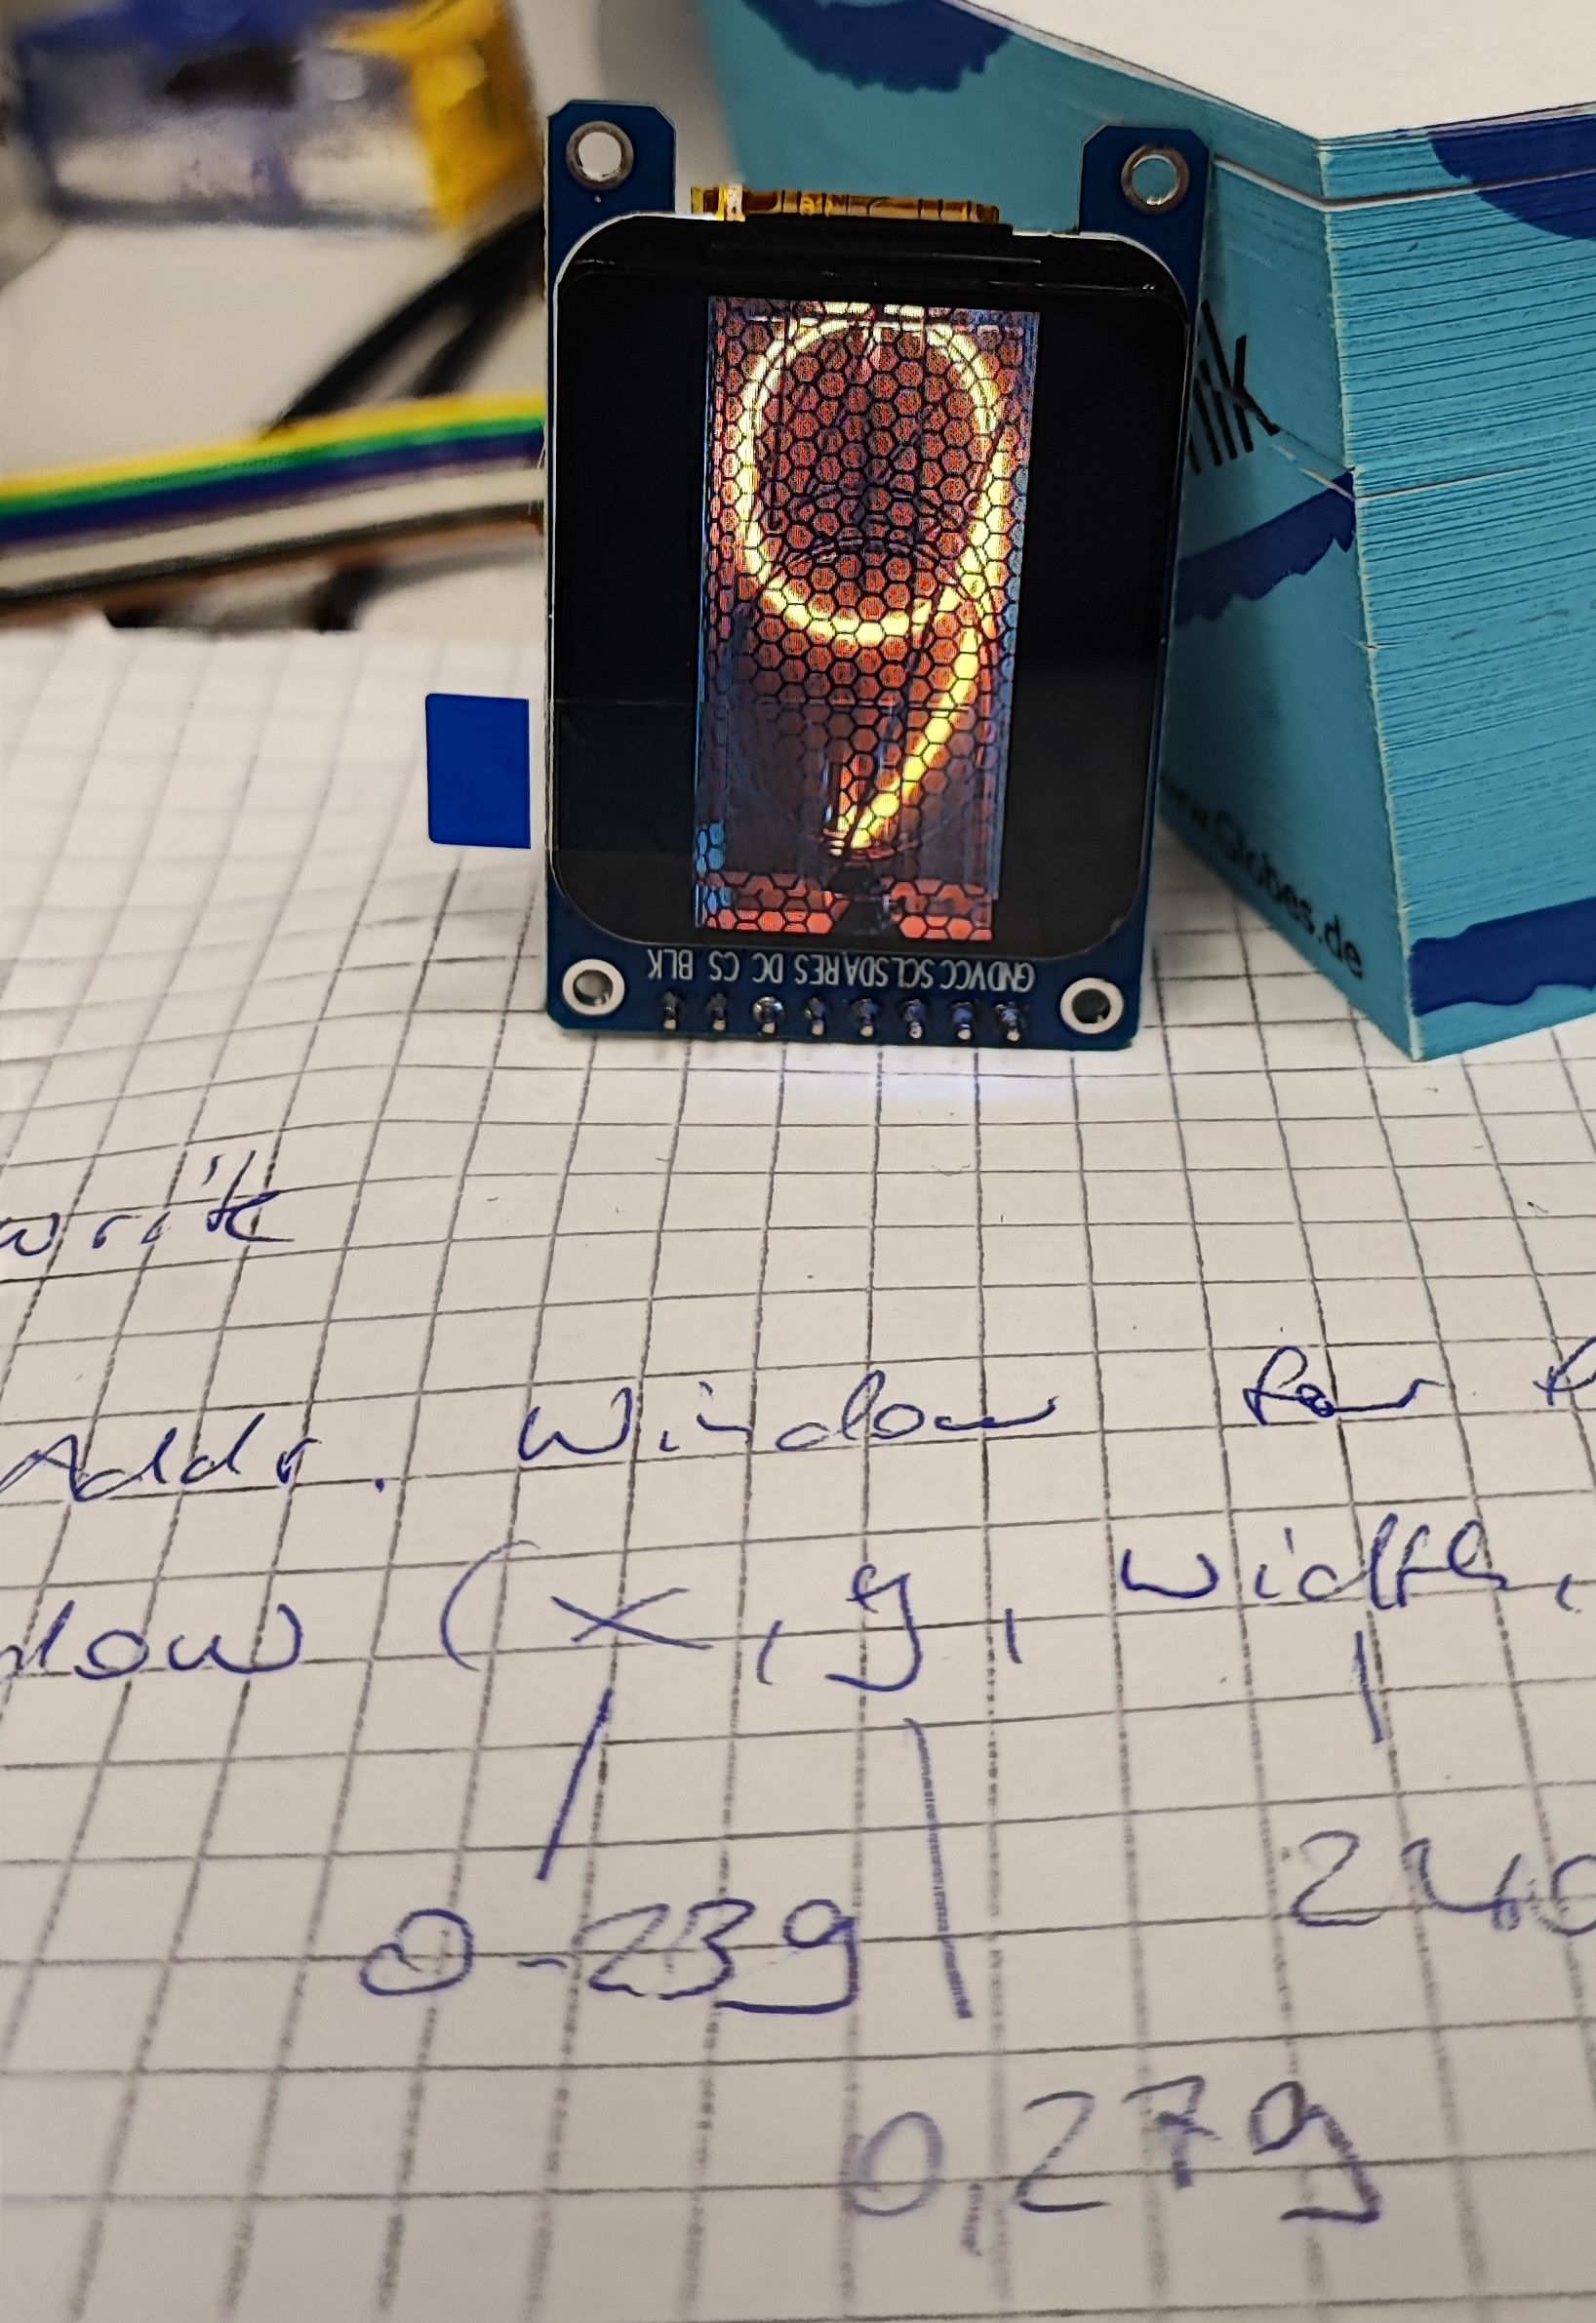 9
GND VCC SCL SDA RES DC CS BLK
www.Globes.de
write
Addr. Window for
dow (x, y, width,
0-239
240
0,279